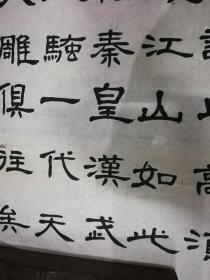 高
江山如此
秦皇漢武
騷一代天
雕俱往矣